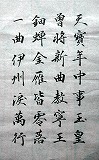 天寶年中事玉皇
曾將新曲教寧王
鈿蟬金雁皆零落
一曲伊州淚萬行